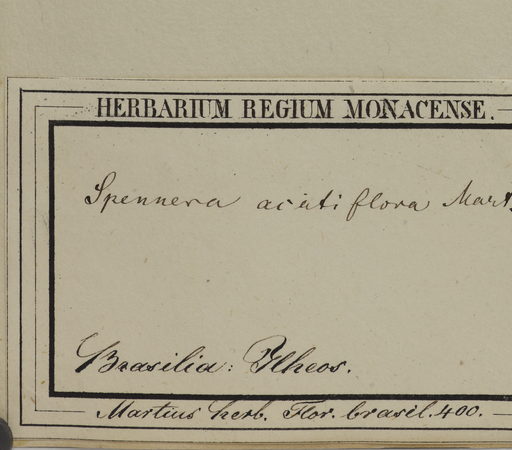 HERBARIUM REGIUM MONACENSE.
Spennera acutiflora Mart.
Brasilia: Ilheos.
Martius herb. Flor. brasil. 400.